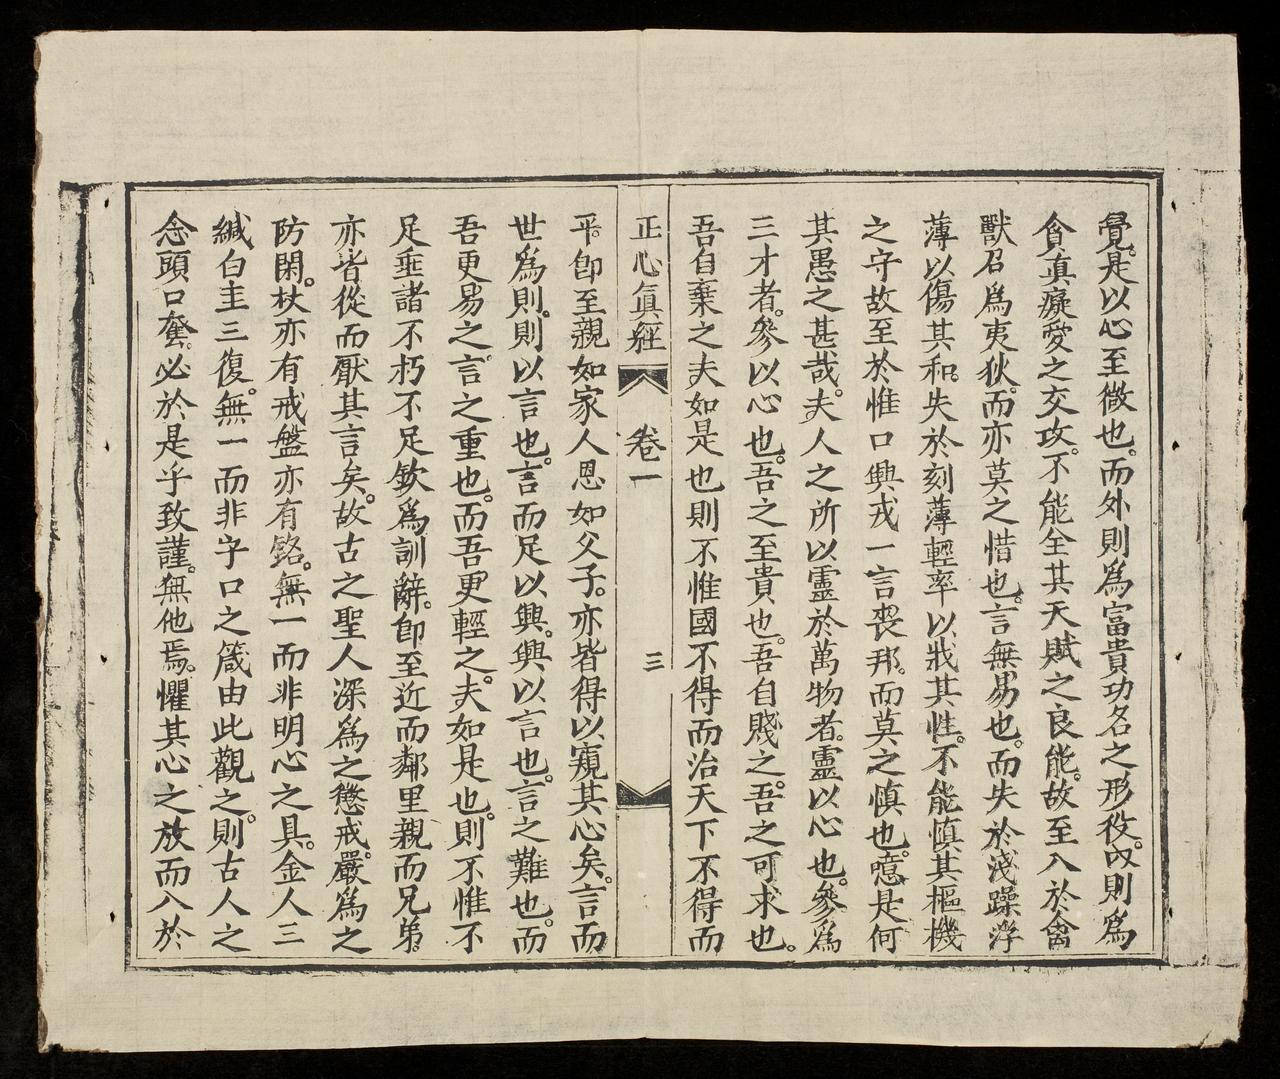 覺。是以心至微也。而外則爲富貴功名之形役。內則爲
貪嗔癡愛之交攻。不能全其天賦之良能。故至入於禽
獸召爲夷狄。而亦莫之惜也。言無易也。而失於淺躁浮
薄以傷其和。失於刻薄輕率以戕其性。不能慎其樞機
之守故至於惟口興戎一言喪邦。而莫之慎也。噫是何
其愚之甚哉。夫人之所以靈於萬物者。靈以心也。參爲
三才者。參以心也。吾之至貴也。吾自賤之。吾之可求也。
吾自棄之夫如是也則不惟國不得而治天下不得而
正心眞經 卷一 三
平。卽至親如家人恩如父子。亦皆得以窺其心矣。言而
世爲則。則以言也。言而足以興。興以言也。言之難也。而
吾更易之。言之重也。而吾更輕之。夫如是也。則不惟不
足垂諸不朽不足欽爲訓辭。卽至近而鄰里親而兄弟
亦皆從而厭其言矣。故古之聖人深爲之懲戒。嚴爲之
防閑。杖亦有戒盤亦有銘。無一而非明心之具。金人三
緘白圭三復。無一而非守口之箴由此觀之。則古人之
念頭口奪。必於是乎致謹。無他焉。懼其心之放而入於